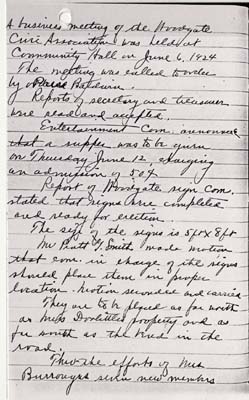 A business meeting of the Woodgate
Civic Association was held at
Community Hall on June 6, 1924
The meeting was called to order
by Baldwin.
Reports of secretary and treasurer
were read and accepted.
Entertainment Com. announced
that a supper was to be given
on Thursday June 12, charging
an admission of 50¢
Report of Woodgate sign com.
stated that signs are completed
and ready for erection.
The size of the signs is 5ft x 8ft
Mr Smith made motion
that com. in charge of the signs
should place them in proper
location. Motion seconded and carried
They are to be placed as far north
as Miss Doolittles property and as
far south as the bend in the
road.
Thru the efforts of Mrs
Burroughs seven new members